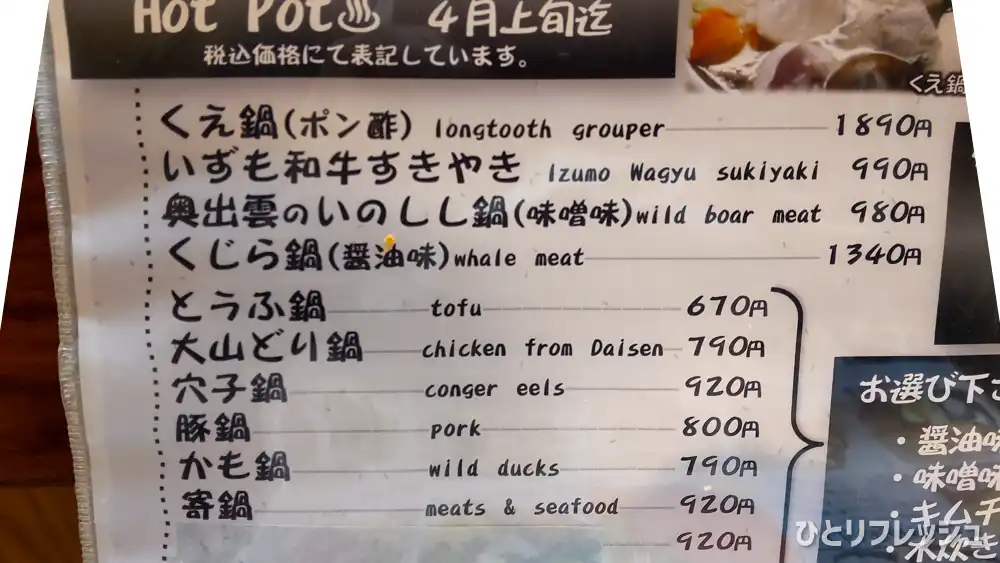 Hot Pot♨ 4月上旬迄
税込価格にて表記しています。
くえ鍋
くえ鍋(ポン酢) longtooth grouper 1890円
いずも和牛すきやき Izumo Wagyu sukiyaki 990円
奥出雲のいのしし鍋(味噌味)wild boar meat 980円
くじら鍋(醤油味)whale meat 1340円
とうふ鍋 tofu 670円
大山どり鍋 chicken from Daisen 790円
穴子鍋 conger eels 920円
豚鍋 pork 800円
かも鍋 wild ducks 790円
寄鍋 meats & seafood 920円
920円
お選び下さ
・醤油味
・味噌味
・キムチ
・水炊き
ひとりフレッシュ